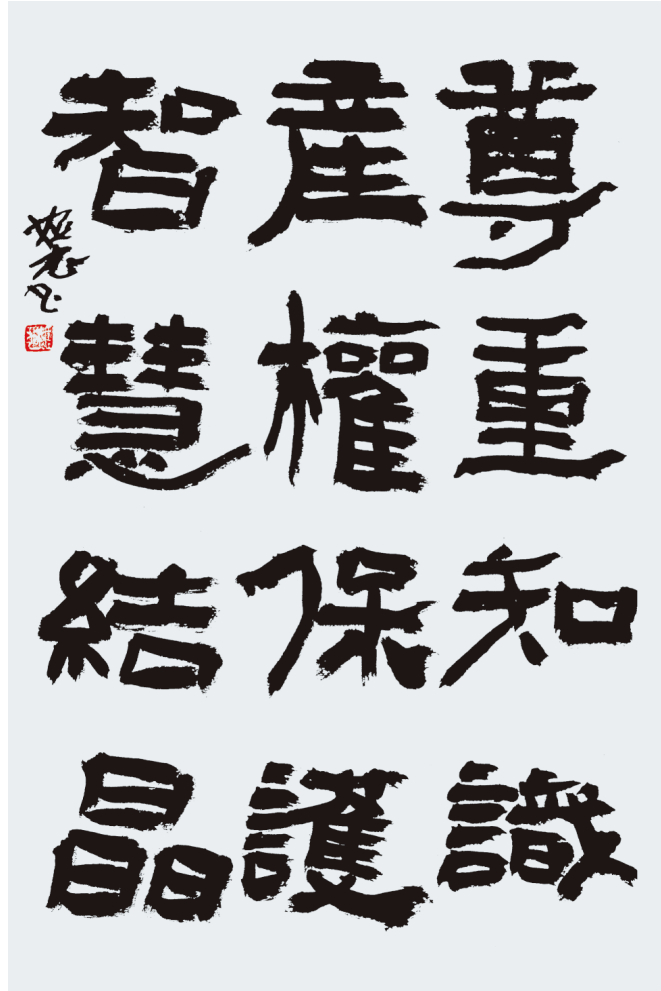 尊重知識
產權保護
智慧結晶